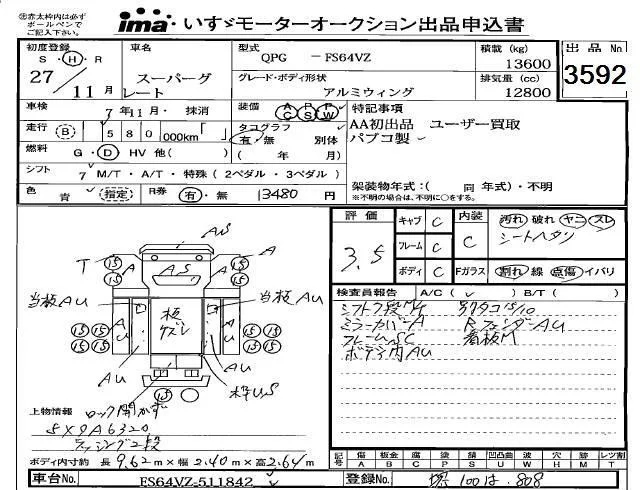 ㊟赤太枠内は必ず
ボールペンで
ご記入下さい。
ima いすゞモーターオークション出品申込書
初度登録 車名 型式 積載 (kg) 出品 No
S・H・R QPG － FS64VZ 13600
27/11月 スーパーグレート グレード・ボディ形状 排気量 (cc) 3592
アルミウィング 12800
車検 7年11月・抹消 装備 AC PS PW 特記事項
走行 (B) 580,000km「 」 タコグラフ AA初出品 ユーザー買取
有・無 別体 パブコ製
燃料 G・D HV 他( ) ( 年 月)
シフト 7 M/T・A/T・特殊(2ペダル・3ペダル) 架装物年式:( 同 年式)・不明
色 青 指定 R券 有・無 13480円 ※不明の場合は、不明に○をする。
評価 キャブ C 内装 汚れ 破れ ヤニ スレ
3.5 フレーム C C シートヘタリ
ボディ C Fガラス 割れ 線 点傷 イバリ
検査員報告 A/C( ✓ ) B/T( )
ミラーカバーA RフェンダーAU
フレームSC 看板M
ボデー内AU
AS
T A
AS A
当板AU 当板AU
板
ズレ
A A
AU AU
枠US
上物情報 ロック開かず
5X9A6320
ラッシング2段
ボディ内寸約 長9.62m×幅2.40m×高2.64m
記号 傷 板金 腐 塩 サビ 凹凸曲 波 穴 跡 レツ割
A B C P S U W H M T
車台No. FS64VZ-511842 登録No. 堺100は.808